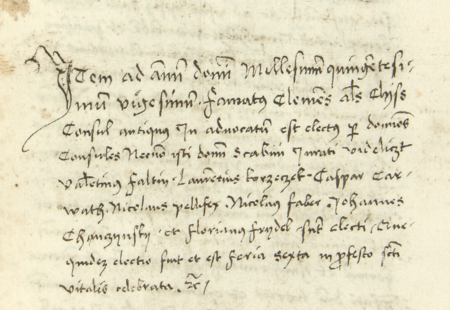 Item ad annũ domĩ Millesimũ quingẽtesi-
mũ vigesimũ famatus Clemẽs als Chyss
Consul antiquus In advocatũ est electus p domĩos
Consules Necnõ isti domĩ Scabini Jurati videlizt
Valẽtinus Faltin. Laurẽtius Korzeczek. Caspar Car-
wath. Nicolaus pellifex. Nicolaus Faber. Johannes
et Florianus Frydel sũt electi. Que
quidez electio fuit et est feria sexta in pfesto scti
vitalis celebrata.